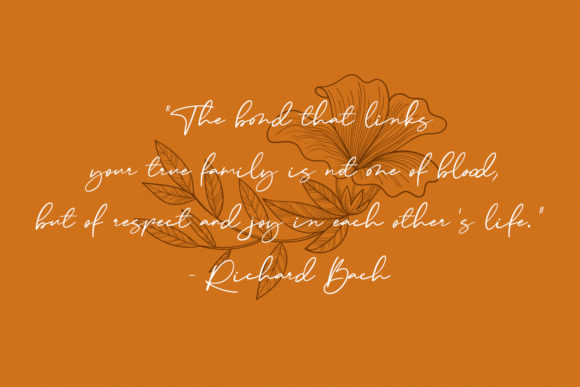 "The bond that links
your true family is not one of blood,
but of respect and joy in each other's life."
- Richard Bach